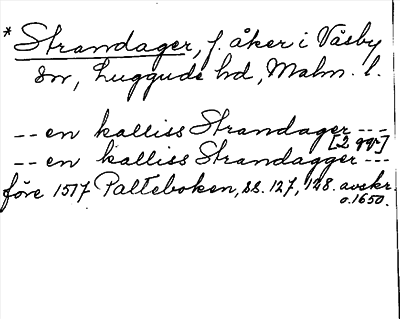 * Strandager, f. åker i Väsby
sn, Luggude hd, Malm. l.
-- en kalliss Strandager ---
[2 ggr]
-- en kalliss Strandagger ---
före 1517 Palteboken, ss. 127, 128. avskr.
o. 1650.